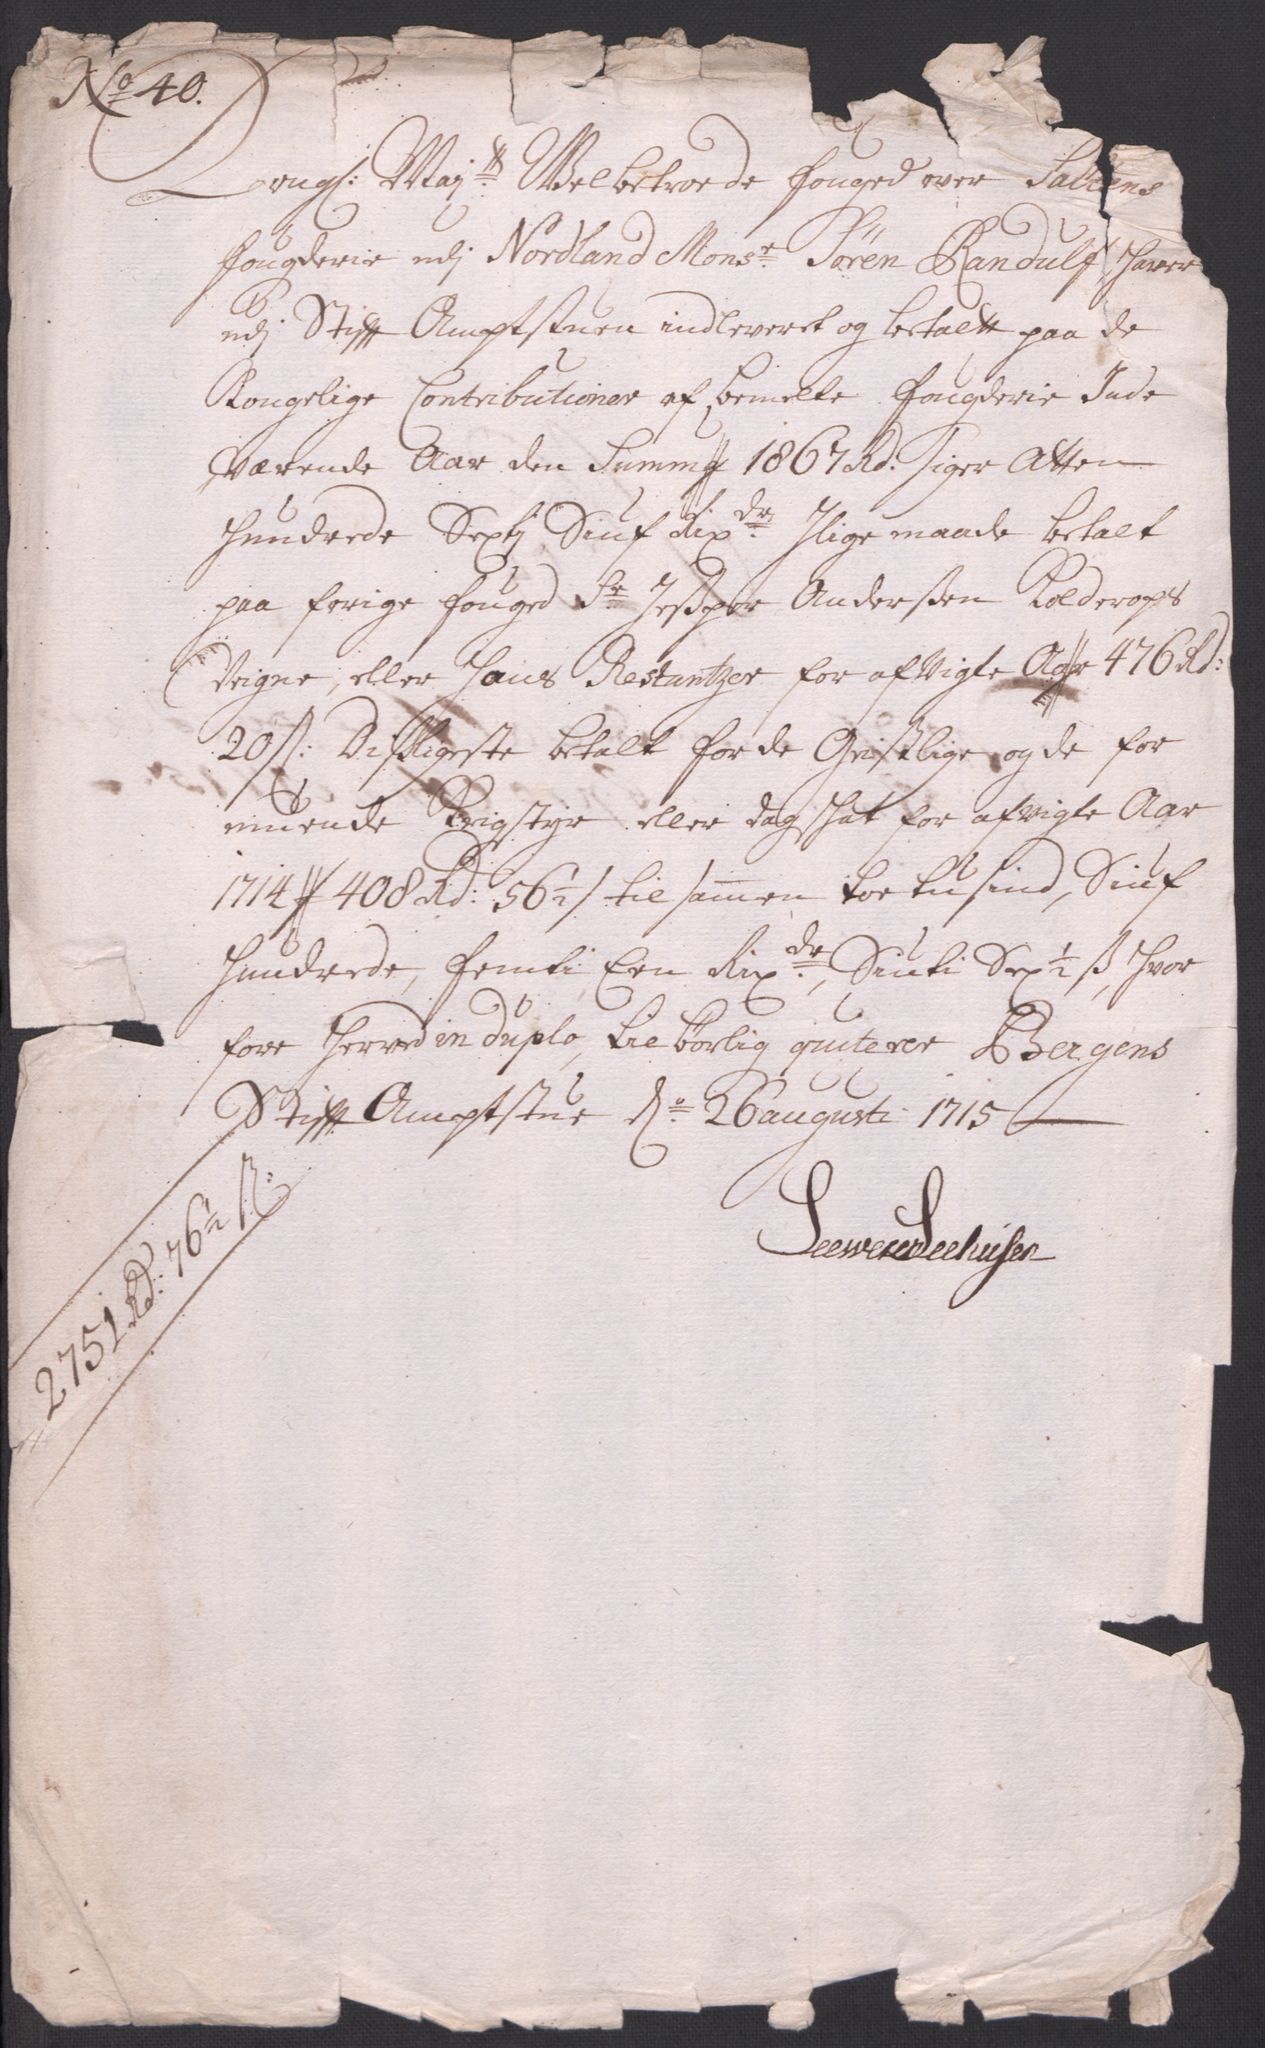 No 40.
Kongl: Mayts Welbetroede fouged over Saltens
fougderie udj Nordland Monsr Sören Randulf, hafver
udj Stifft Amptstuen indleveret og betalt paa de
Kongelige Contributioner af bemelte fougderie Inde
værende Aar den Summa 1867 Rd: siger Atten
hundrede Sexti Siuf Rixdr Iligemaade betalt
paa forige fouged Sr Jesper Anderssen Kolderops
Veigne, eller hans Restantzer for afvigte Aar 476 Rd:
20 s: Disligeste betalt for de Geistlige og de for
muende Krigstyr eller dagschat for afvigte Aar
1714 // 408 Rd: 56½ s til sammen toe tusind, Siuf
hundrede, femti Een Rixdr, Siuti Sex ½ s, hvor
fore herved in duplo, tilbörlig quiterer Bergens
Stifft Amptstue do 26 augusti 1715
Seewer Seehusen
2751 Rd: 76½ s: